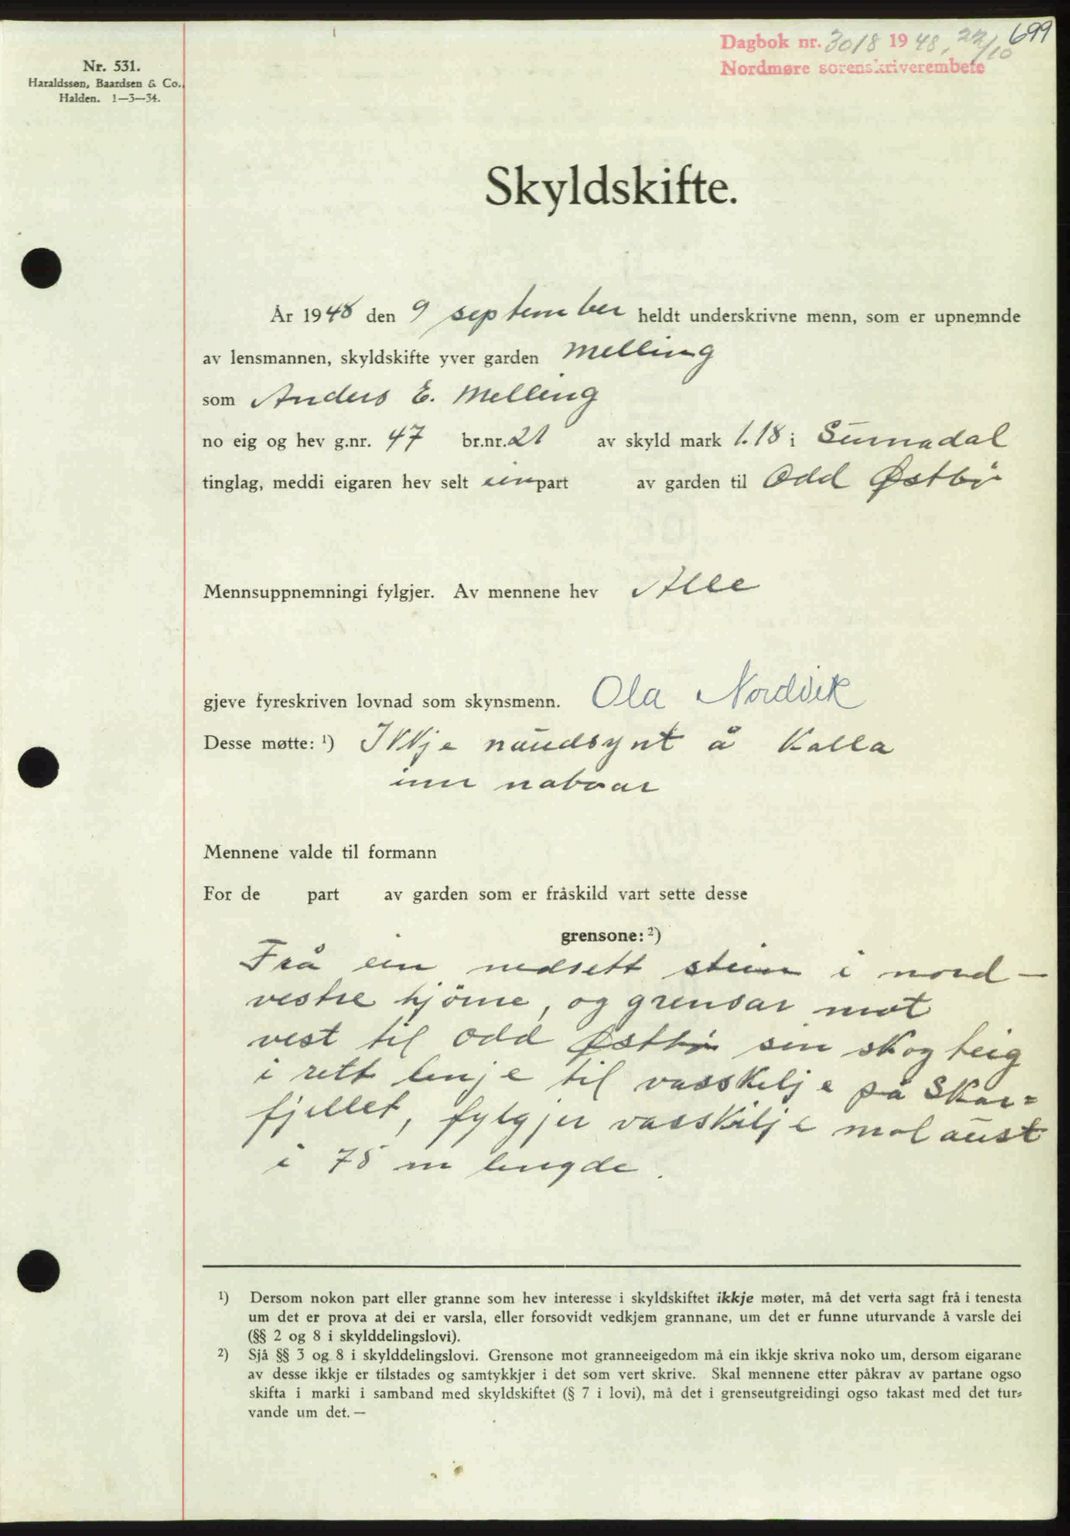 699
Dagbok nr. 3018 1948, 22/10
Nordmøre sorenskriverembete
Nr. 531.
Haraldssøn, Baardsen & Co.,
Halden. 1—3—34.
Skyldskifte.
År 1948 den 9 september heldt underskrivne menn, som er upnemnde
av lensmannen, skyldskifte yver garden Melling
som Anders E. Melling
no eig og hev g.nr. 47 br.nr. 21 av skyld mark 1.18 i Surnadal
tinglag, meddi eigaren hev selt ein part av garden til Odd Østbö
Mennsuppnemningi fylgjer. Av mennene hev Alle
gjeve fyreskriven lovnad som skynsmenn. Ola Nordvik
Desse møtte: ¹) Ikkje naudsynt å kalla
inn naboar
Mennene valde til formann
For de part av garden som er fråskild vart sette desse
grensone: ²)
Frå ein nedsett stein i nord-
vestre hjörne, og grensar mot
vest til Odd Östbö sin skogteig
i rett linje til vasskilje på Skar=
fjellet, fylgjer vasskilje mot aust
i 75 m lengde.
¹) Dersom nokon part eller granne som hev interesse i skyldskiftet ikkje møter, må det verta sagt frå i tenesta
um det er prova at dei er varsla, eller forsovidt vedkjem grannane, um det er funne uturvande å varsle dei
(§§ 2 og 8 i skylddelingslovi).
²) Sjå §§ 3 og 8 i skylddelingslovi. Grensone mot granneeigedom må ein ikkje skriva noko um, dersom eigarane
av desse ikkje er tilstades og samtykkjer i det som vert skrive. Skal mennene etter påkrav av partane ogso
skifta i marki i samband med skyldskiftet (§ 7 i lovi), må det i grenseutgreidingi ogso takast med det tur-
vande um det. —